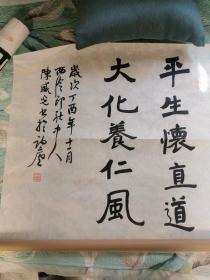 平生懷直道
大化養仁風
歲次丁酉年十一月
西泠印社中人
陳威光書於